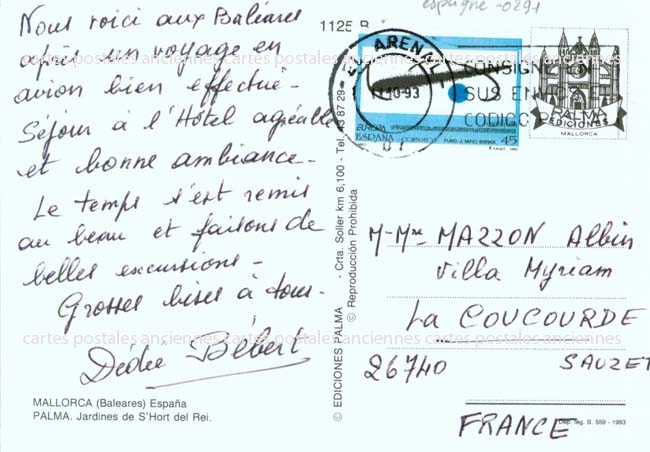 espagne-0291
1125 B
Nous voici aux Baléares
après un voyage en
avion bien effectué -
Séjour à l'Hôtel agréable
et bonne ambiance -
Le temps s'est remis
au beau et faisons de
belles excursions -
Grosses bises à tous.
Dédée Bébert
MALLORCA (Baleares) España
PALMA. Jardines de S'Hort del Rei.
© EDICIONES PALMA - Crta. Soller km 6,100 - Tel. 43 87 29
© Reproducción Prohibida
ARENA
10-93
07
CONSIGNE EN
SUS ENVIOS EL
CODIGO POSTAL
EUROPA
ESPAÑA
CORREOS
45
FUND. J. MIRO. BARNA.
PALMA
EDICIONES
MALLORCA
M-Mme MAZZON Albin
Villa Myriam
La COUCOURDE
26740 SAUZET
FRANCE
Dep. leg. B. 559 - 1993
cartes postales anciennes cartes postales anciennes
cartes postales anciennes cartes postales anciennes